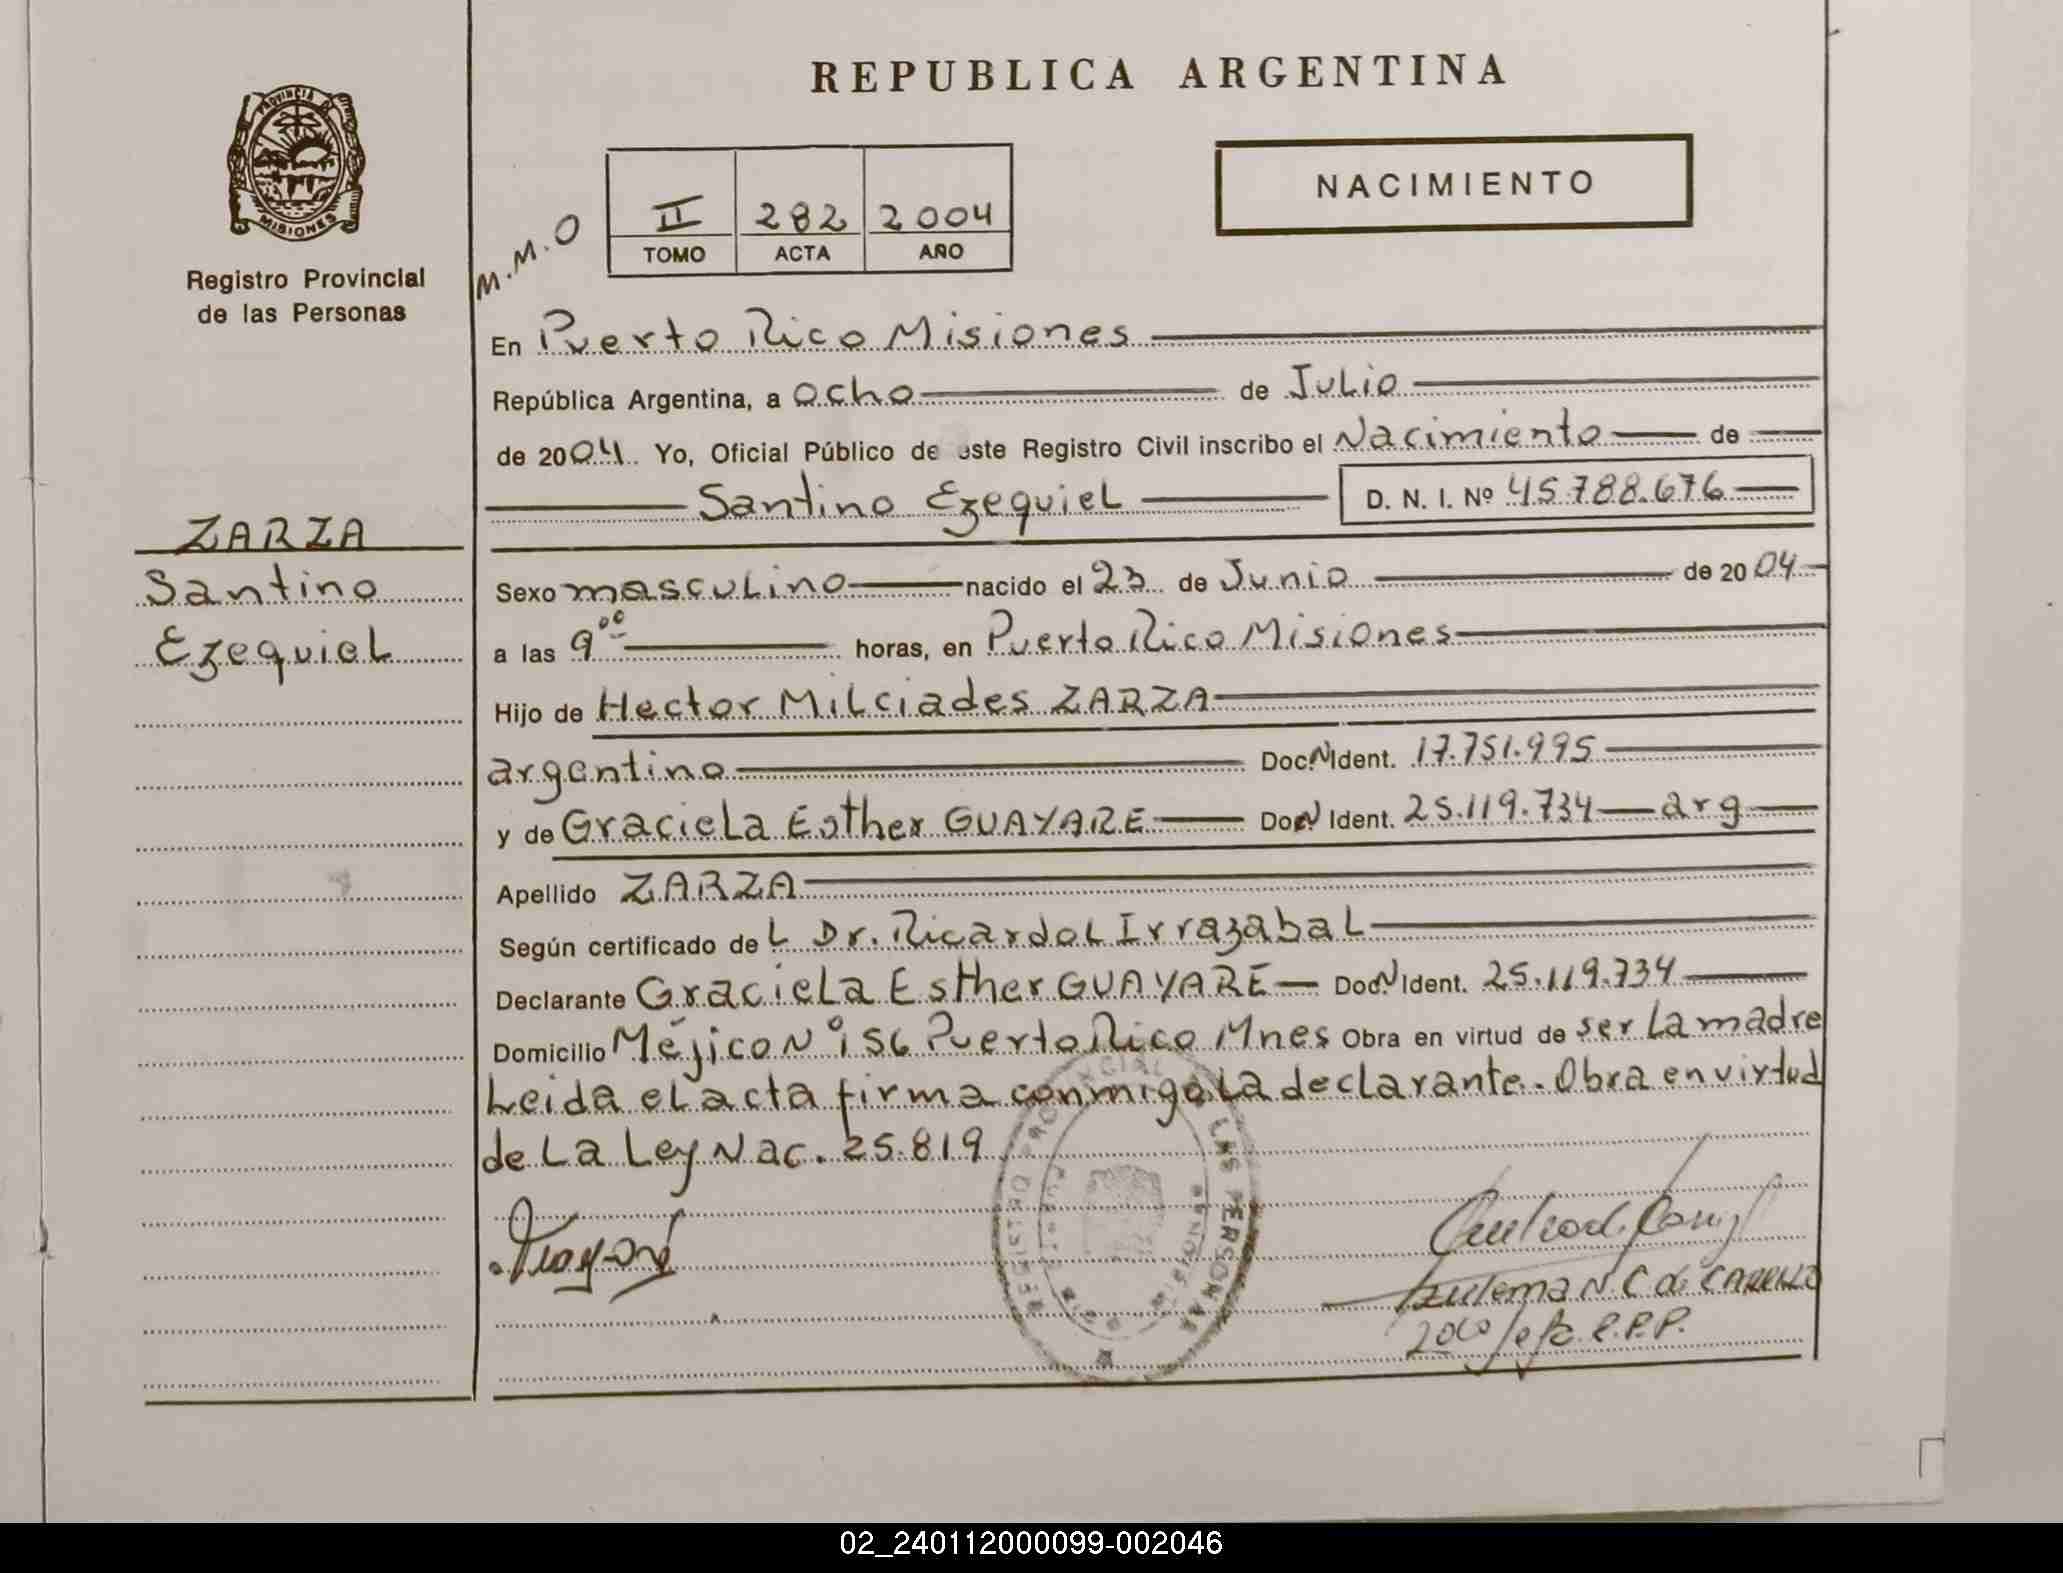 REPUBLICA ARGENTINA
PROVINCIA D
MISIONES
Registro Provincial
de las Personas
M.M.O
II 282 2004
TOMO ACTA AÑO
NACIMIENTO
En Puerto Rico Misiones
República Argentina, a ocho de Julio
de 2004. Yo, Oficial Público de este Registro Civil inscribo el Nacimiento de
Santino Ezequiel D. N. I. Nº 45.788.676
ZARZA
Santino
Ezequiel
Sexo masculino nacido el 23 de Junio de 2004
a las 9°° horas, en Puerto Rico Misiones
Hijo de Hector Milciades ZARZA
argentino Doc. N Ident. 17.751.995
y de Graciela Esther GUAYARE Doc. N Ident. 25.119.734 arg
Apellido ZARZA
Según certificado del Dr. Ricardo L Irrazabal
Declarante Graciela Esther GUAYARÉ Doc. N Ident. 25.119.734
Domicilio Méjico N° 156 Puerto Rico Mnes Obra en virtud de ser la madre
Leida el acta firma conmigo la declarante. Obra en virtud
de La Ley Nac. 25.819
REGISTRO PROVINCIAL LAS PERSONAS
MISIONES
Zulema N. C de CARRILLO
Jefe R.P.P.
02_240112000099-002046